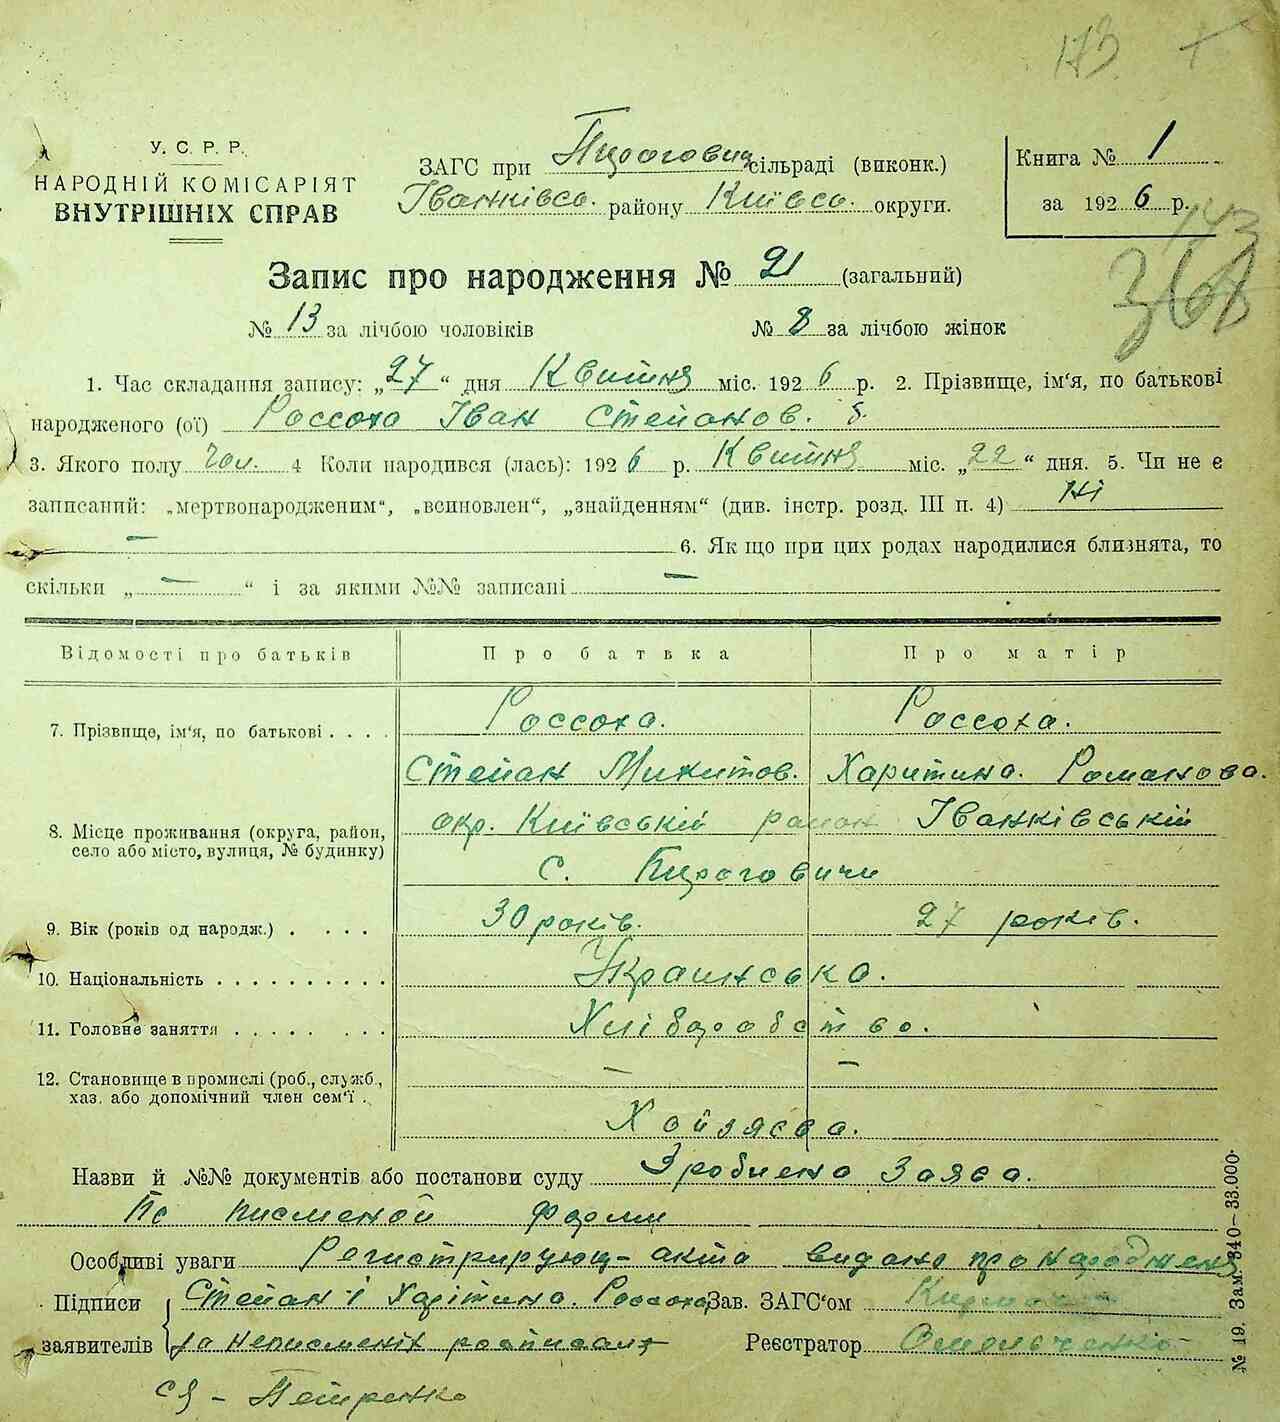 173 +
У. С. Р. Р.
НАРОДНІЙ КОМІСАРІЯТ
ВНУТРІШНІХ СПРАВ
ЗАГС при Пироговиц сільраді (виконк.)
Іванківсь. району Київсь. округи.
Книга № 1
за 1926 р.
143
368
Запис про народження № 21 (загальний)
№ 13 за лічбою чоловіків № 8 за лічбою жінок
1. Час складання запису: „27“ дня Квитня міс. 1926 р. 2. Прізвище, ім'я, по батькові
народженого (ої) Россоха Іван Степанов.
3. Якого полу чол. 4 Коли народився (лась): 1926 р. Квитня міс. „22“ дня. 5. Чи не є
записаний: „мертвонародженим“, „всиновлен“, „знайденням“ (див. інстр. розд. III п. 4) Ні
— 6. Як що при цих родах народилися близнята, то
скільки „—“ і за якими №№ записані —
Відомості про батьків Про батька Про матір
7. Прізвище, ім'я, по батькові . . . . Россоха. Россоха.
Степан Микитов. Харитина. Романова.
8. Місце проживання (округа, район, село або місто, вулиця, № будинку) окр. Київській район Іванківській
с. Пироговичи
9. Вік (років од народж.) . . . . 30 років. 27 років.
10. Національність . . . . . . . . . . Украинська.
11. Головне заняття . . . . . . . . Хліборобство.
12. Становище в промислі (роб., служб., хаз. або допомічний член сем'ї . — —
Хозяєва.
Назви й №№ документів або постанови суду Зроблено Заява.
По писменой форми
Особливі уваги Регистрирующ- акта видано про народження
Підписи заявителів Степан і Харітина. Россоха Зав. ЗАГС'ом
за неписмених росписалс Реєстратор Омельченко
ся - Петренко
№ 19. Зам. 340—33.000